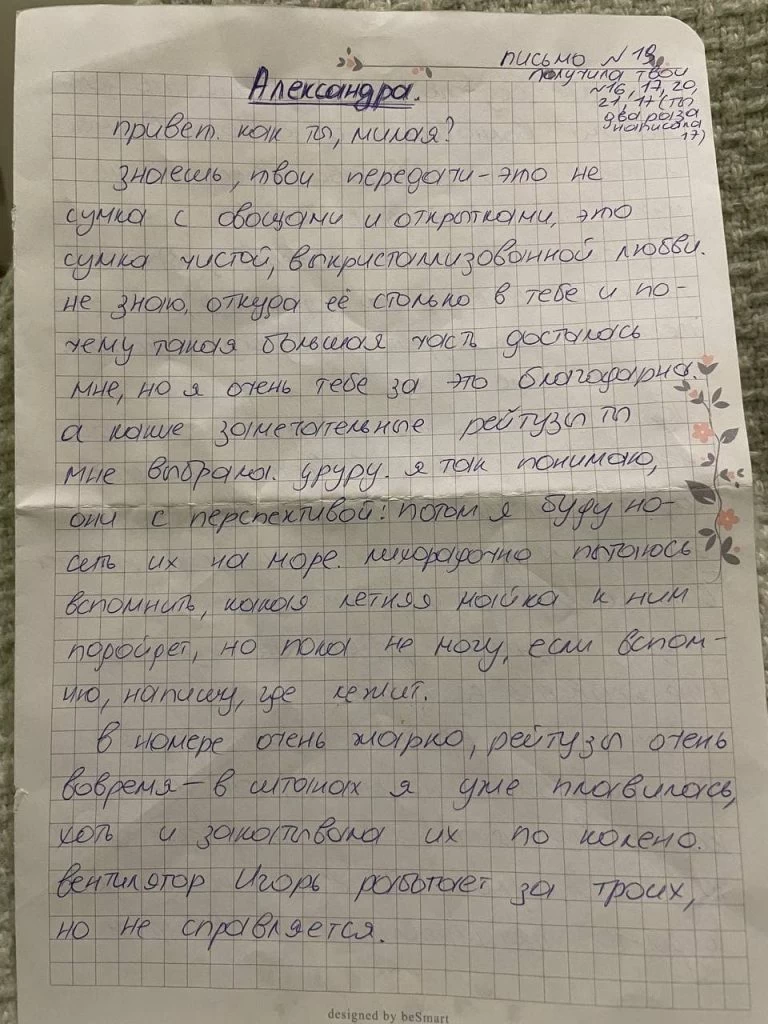 письмо №19,
получила твои
№16, 17, 20,
21, 17 (ты
два раза
написала
17)
Александра.
привет. как ты, милая?
знаешь, твои передачи – это не
сумка с овощами и открытками, это
сумка чистой, выкристаллизованной любви.
не знаю, откуда её столько в тебе и по-
чему такая большая часть досталась
мне, но я очень тебе за это благодарна.
а какие замечательные рейтузы ты
мне выбрала. уруру. я так понимаю,
они с перспективой: потом я буду но-
сить их на море. лихорадочно пытаюсь
вспомнить, какая летняя майка к ним
подойдет, но пока не могу, если вспом-
ню, напишу, где лежит.
в номере очень жарко, рейтузы очень
вовремя – в штанах я уже плавилась,
хоть и закатывала их по колено.
вентилятор Игорь работает за троих,
но не справляется.
designed by beSmart